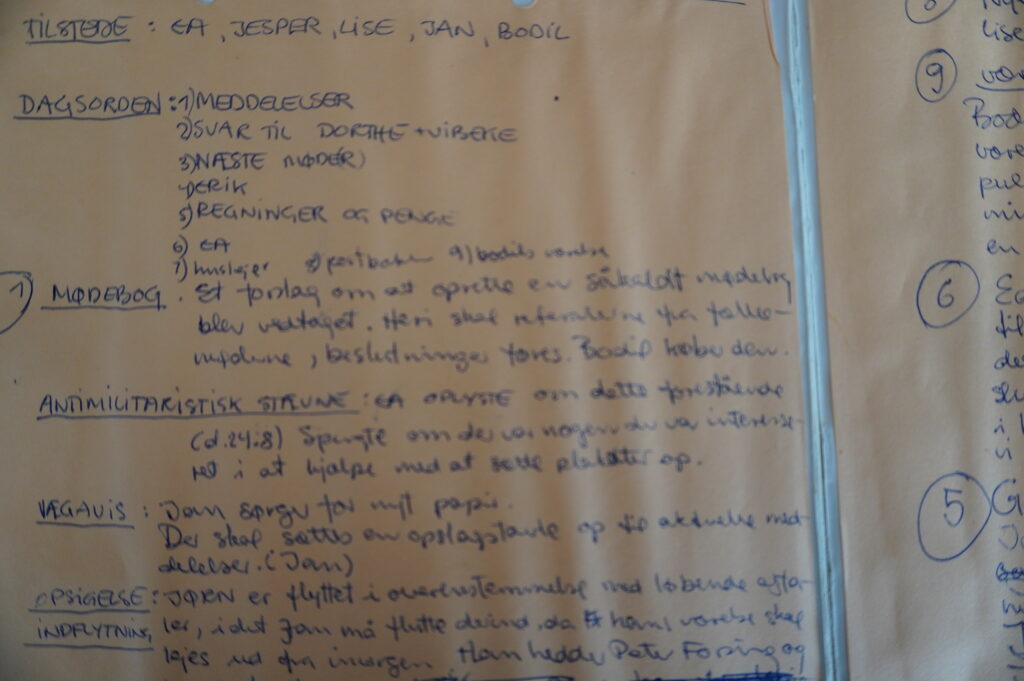 TILSTEDE : EA, JESPER, LISE, JAN, BODIL
DAGSORDEN: 1) MEDDELELSER
2) SVAR TIL DORTHE + VIBEKE
3) NÆSTE MØDE(R)
4) ERIK
5) REGNINGER OG PENGE
6) EA
7) huslejer 8) 9) bodils værelse
1) MØDEBOG. Et forslag om at oprette en såkaldt mødebog
blev vedtaget. Heri skal referaterne fra fælles-
møderne, beslutninger føres. Bodil køber den.
ANTIMILITARISTISK STÆVNE: EA OPLYSTE om dette forestående
(d. 24.8) Spurgte om der var nogen der var interesse-
ret i at hjælpe med at sætte plakater op.
VÆGAVIS: Jan sørger for nyt papir.
Der skal sættes en opslagstavle op til aktuelle med-
delelser. (Jan)
OPSIGELSE: JØRN er flyttet i overensstemmelse med løbende afta-
INDFLYTNING ler, idet Jan må flytte derind, da hans værelse skal
lejes ud fra imorgen. Han hedder Peter og
8)
lise
9)
Bod
en
6
5